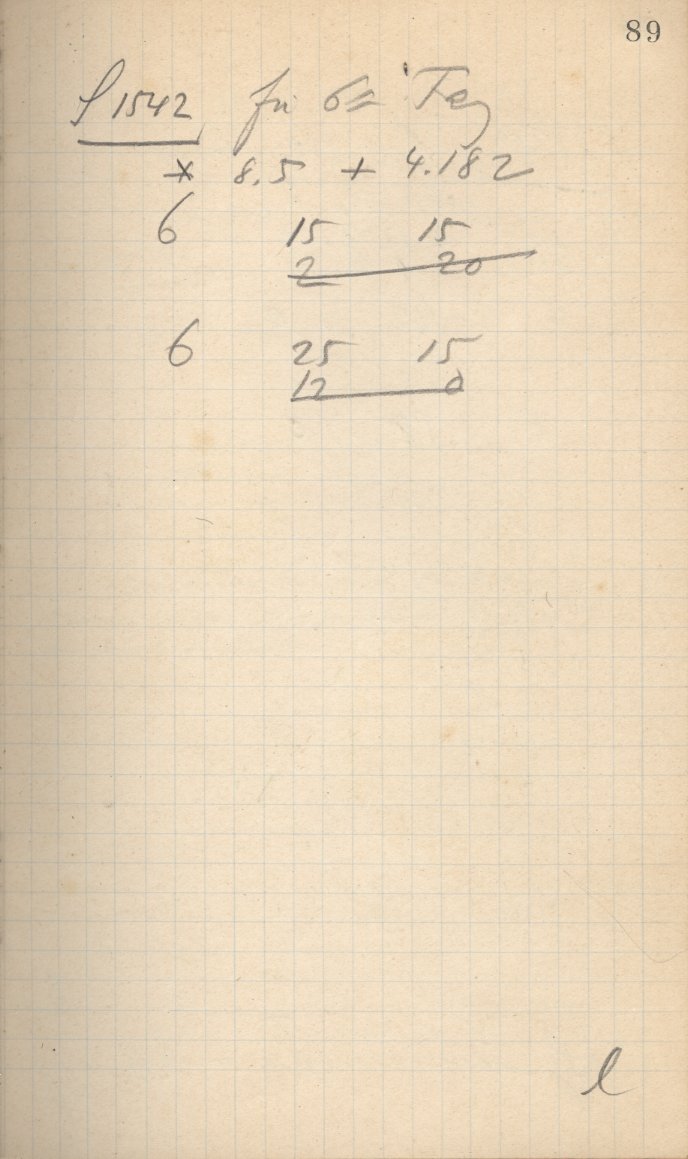 89
P 1542 für 6= Tag
* 8.5 + 4.182
6 15 15
2 20
6 25 15
12 0
l